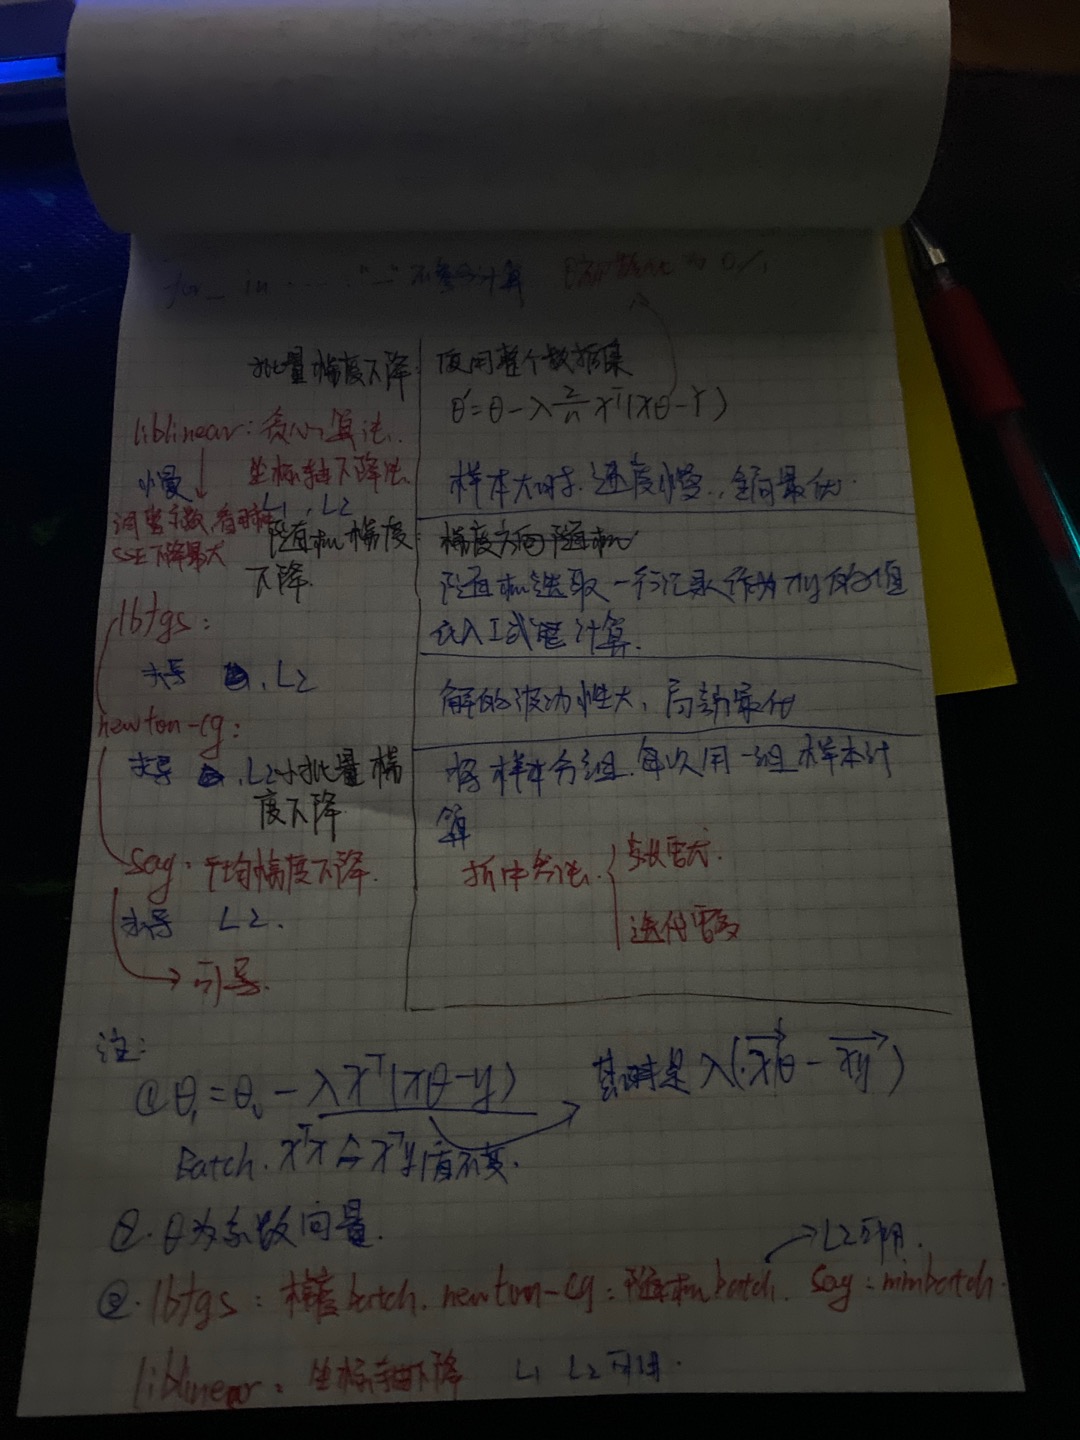 for _ in
批量梯度下降
使用整个数据集
θ' = θ - λ 2/n x^T(xθ - Y)
样本大时, 速度慢, 全局最优.
liblinear: 核心算法.
坐标轴下降法
慢
L1, L2
SSE下降最大
随机梯度
下降.
梯度方向随机
随机选取一行记录作为xy的值
代入 计算.
解的波动性大, 局部最优
lbfgs:
求导 , L2
newton-cg:
求导 , L2
小批量梯
度下降
将样本分组, 每次用一组样本计
算
折中方法.
迭代
sag: 平均梯度下降.
求导 L2.
可导.
注:
① θ₁ = θ₀ - λx^T(xθ - y)
其 是 λ(xθ - xy)
Batch. x^Tx 与 x^Ty 值不变.
②. θ为系数向量.
L2可用.
③. lbfgs: 梯度batch. newton-cg: 随机batch. sag: minbatch.
liblinear: 坐标轴下降 L1 L2可用.